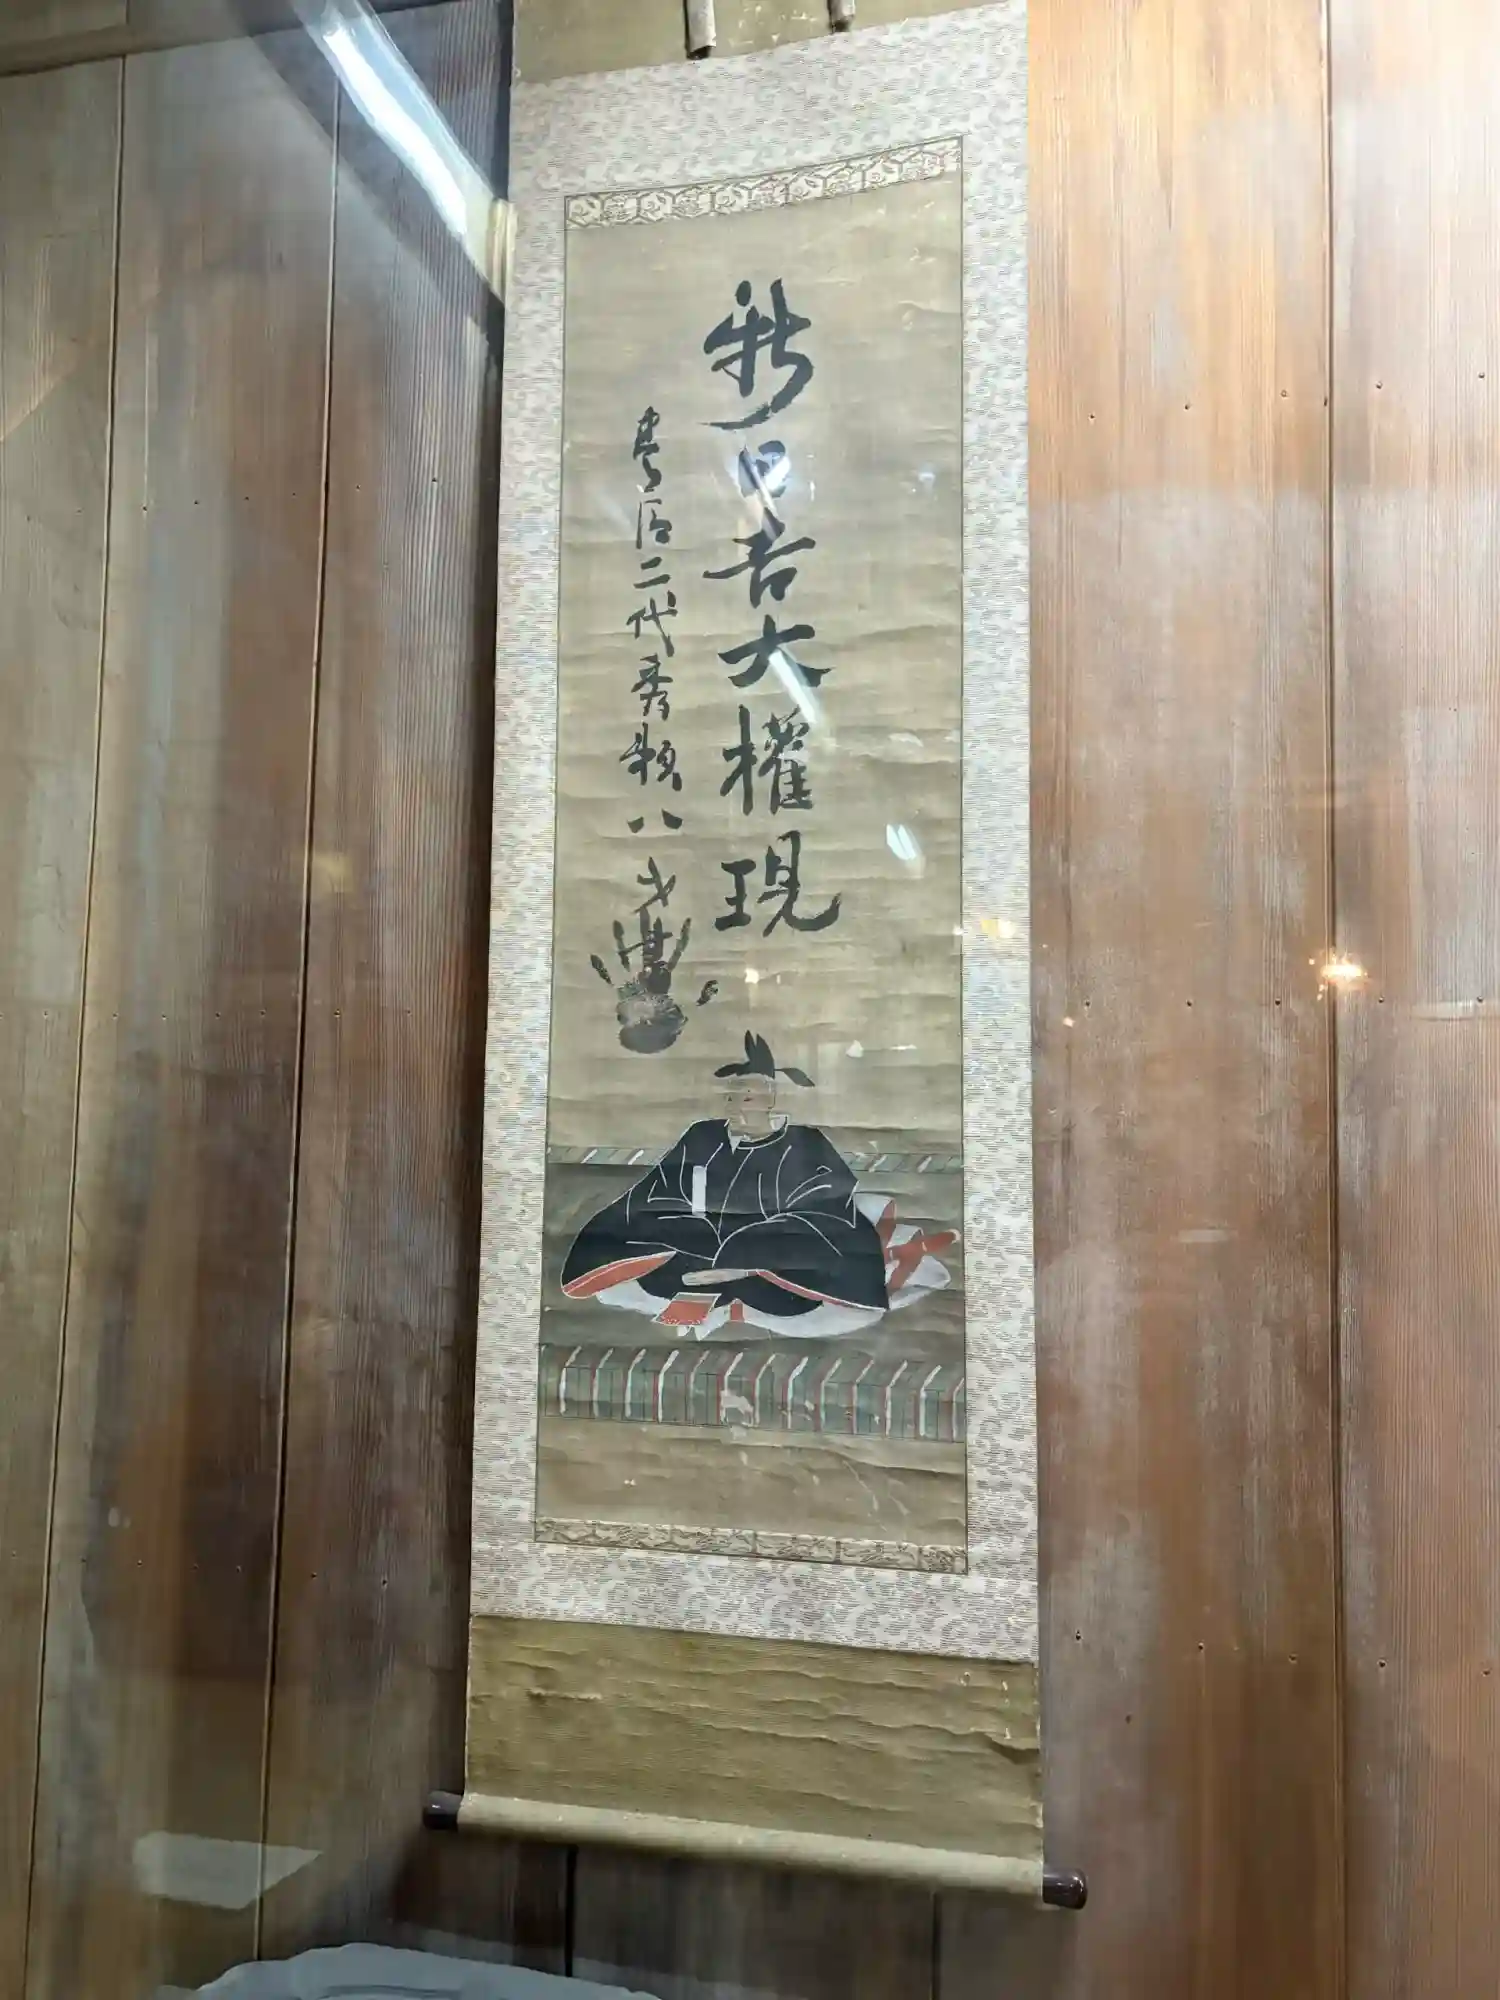 新日吉大權現
豊臣二代秀頼八才書